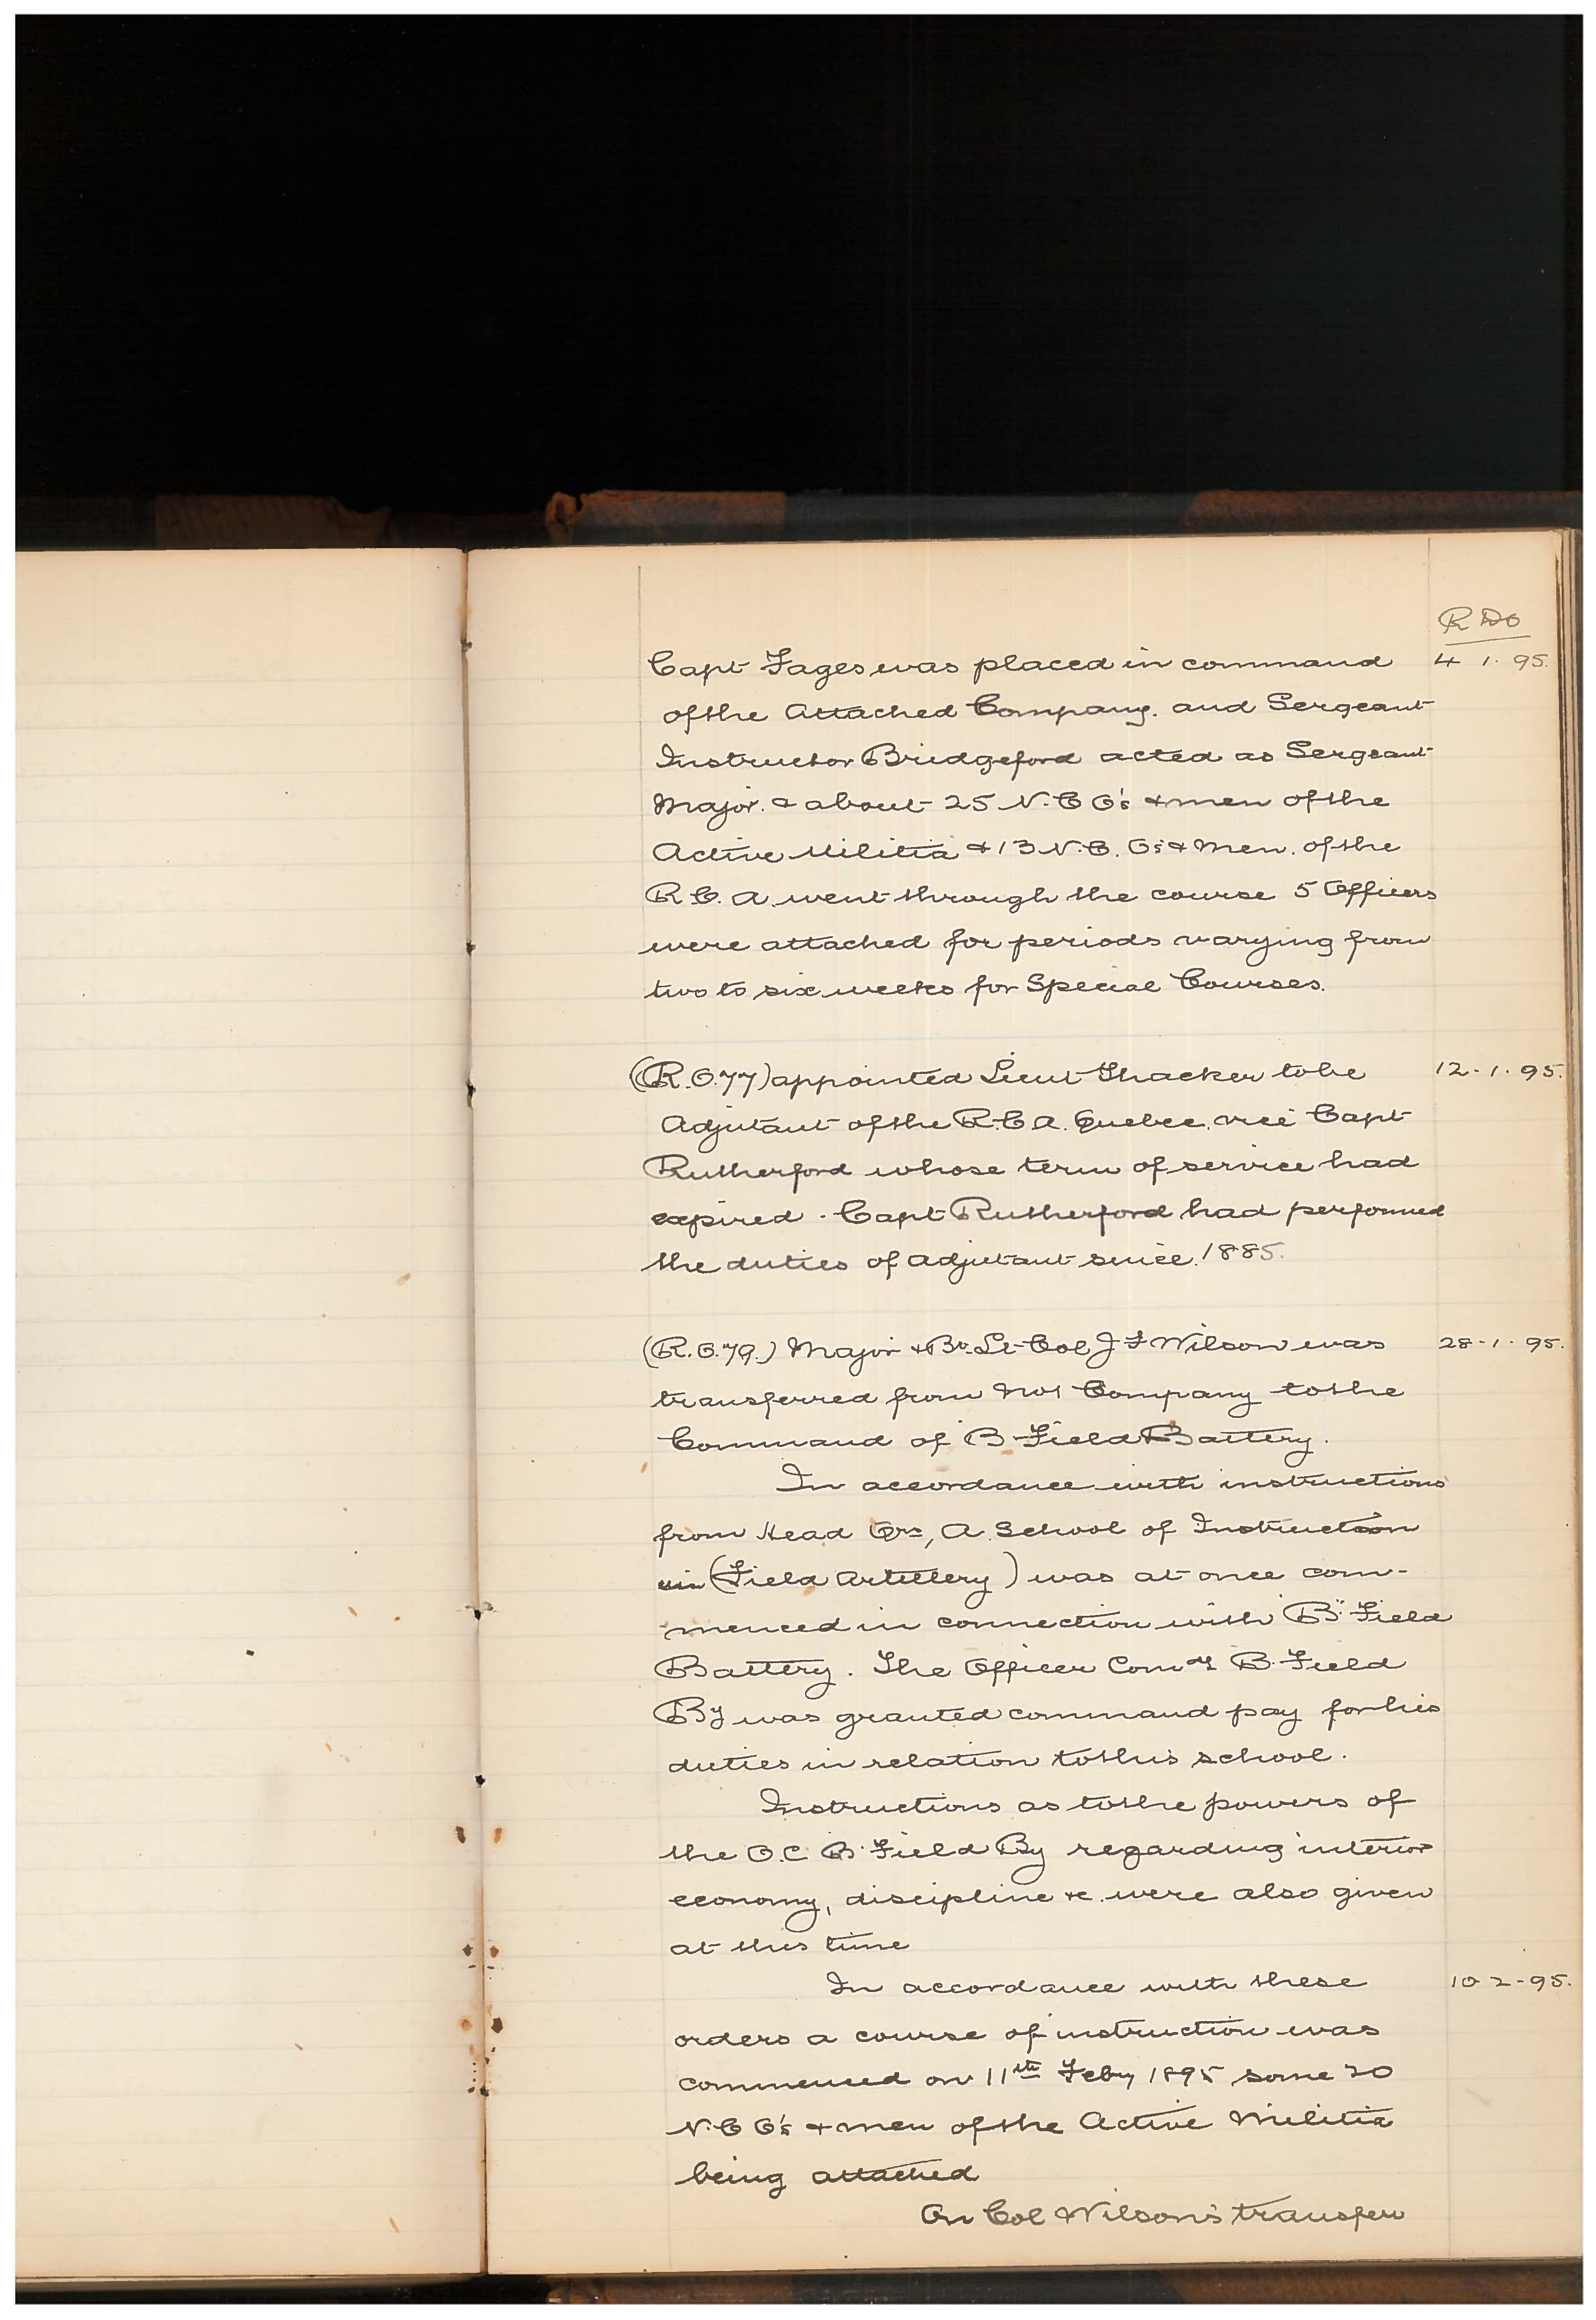 R D O
Capt Fages was placed in command 4 1. 95.
of the Attached Company. and Sergeant
Instructor Bridgeford acted as Sergeant
Major. & about 25 N.C O's & men of the
Active Militia & 13 N.C. Os & Men. of the
R.C. A. went through the course 5 Officers
were attached for periods varying from
two to six weeks for Special Courses.
(R.O. 77) appointed Lieut Thacker to be 12. 1. 95.
Adjutant of the R.C A. Quebec. vice Capt
Rutherford whose term of service had
expired. Capt Rutherford had performed
the duties of Adjutant since. 1885.
(R.O. 79.) Major & Bv. Lt-Col J F Wilson was 28-1. 95.
transferred from No 1 Company to the
Command of B Field Battery.
In accordance with instructions
from Head Qrs, A School of Instruction
in (Field Artillery) was at once com-
menced in connection with "B" Field
Battery. The Officer Comdg B. Field
By was granted command pay for his
duties in relation to this school.
Instructions as to the powers of
the O.C. B. Field By regarding interior
economy, discipline &c. were also given
at this time
In accordance with these 10-2-95.
orders a course of instruction was
commenced on 11th Feby 1895 some 20
N.C O's & men of the Active Militia
being attached
On Col Wilson's transfer